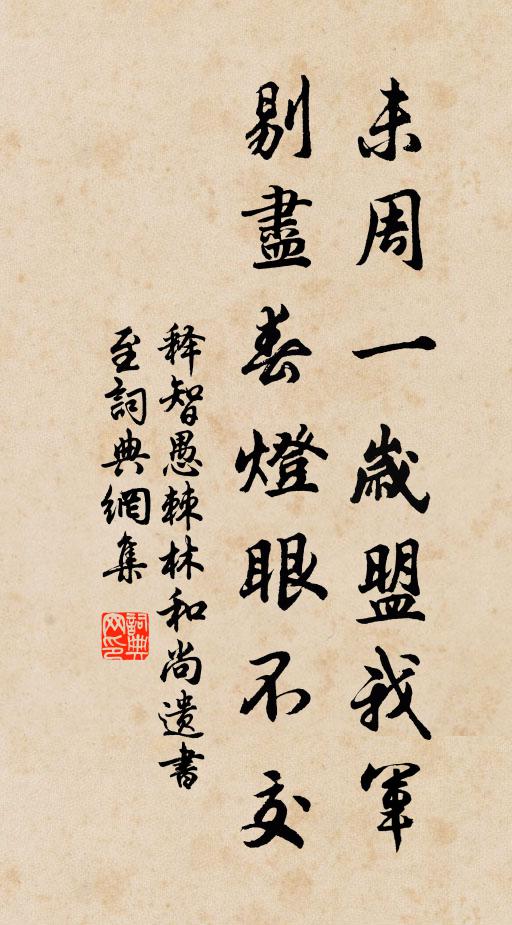 未周一歲盟我軍
剔盡春燈眼不交
释智愚棘林和尚遺書
至詞典網集
詞典网印